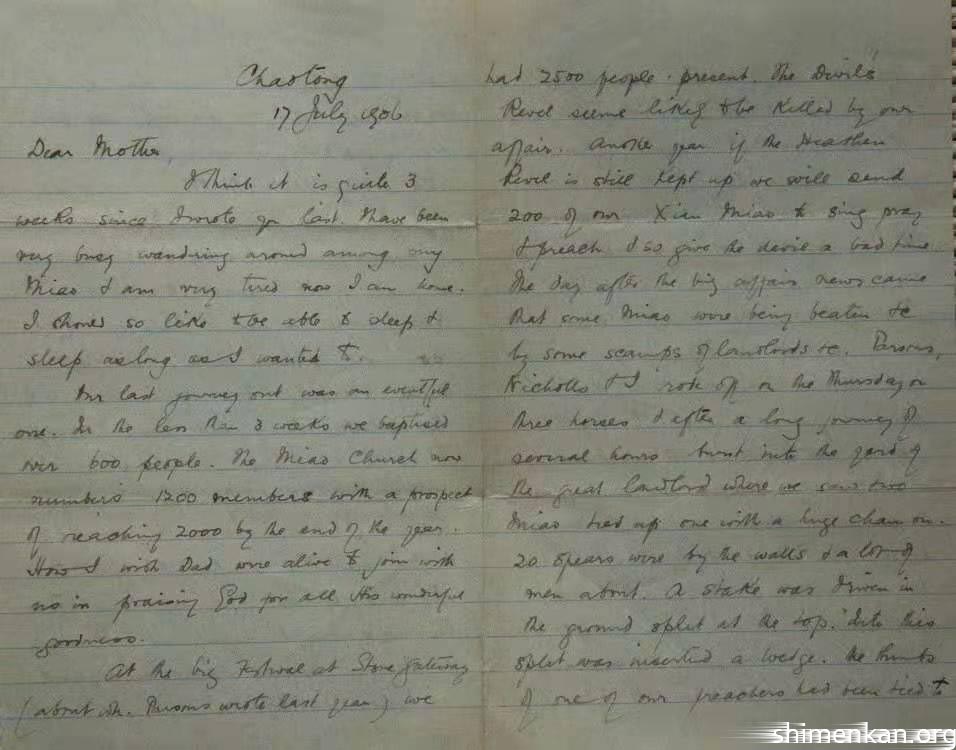 Chaotong
17 July 1906
Dear Mother,
I think it is quite 3
weeks since I wrote you last. I have been
very busy wandering around among my
Miao & am very tired now I am home.
I should so like to be able to sleep &
sleep as long as I wanted to.
Our last journey out was an eventful
one. In the less than 3 weeks we baptised
over 600 people. The Miao Church now
numbers 1200 members with a prospect
of reaching 2000 by the end of the year.
How I wish Dad were alive to join with
us in praising God for all His wonderful
goodness.
At the big Festival at Stone Gateway
(about wh. Parsons wrote last year) we
had 2500 people present. The Devil's
Revel seems likely to be killed by our
affair. Another year if the Heathen
Revel is still kept up we will send
200 of our Xian Miao to sing pray
& preach & so give the devil a bad time.
The day after the big affair news came
that some Miao were being beaten &c
by some scamps of landlords &c. Parsons,
Nicholls & I rode off on the Thursday on
three horses & after a long journey of
several hours burst into the yard of
the great landlord where we saw two
Miao tied up one with a huge chain on.
20 spears were by the walls & a lot of
men about. A stake was driven in
the ground split at the top. Into this
split was inserted a wedge. The thumbs
of one of our preachers had been tied to
shimenkan.org